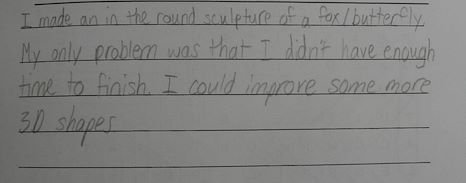 I made an in the round sculpture of a fox/butterfly.
My only problem was that I didn't have enough
time to finish. I could improve some more
3D shapes.